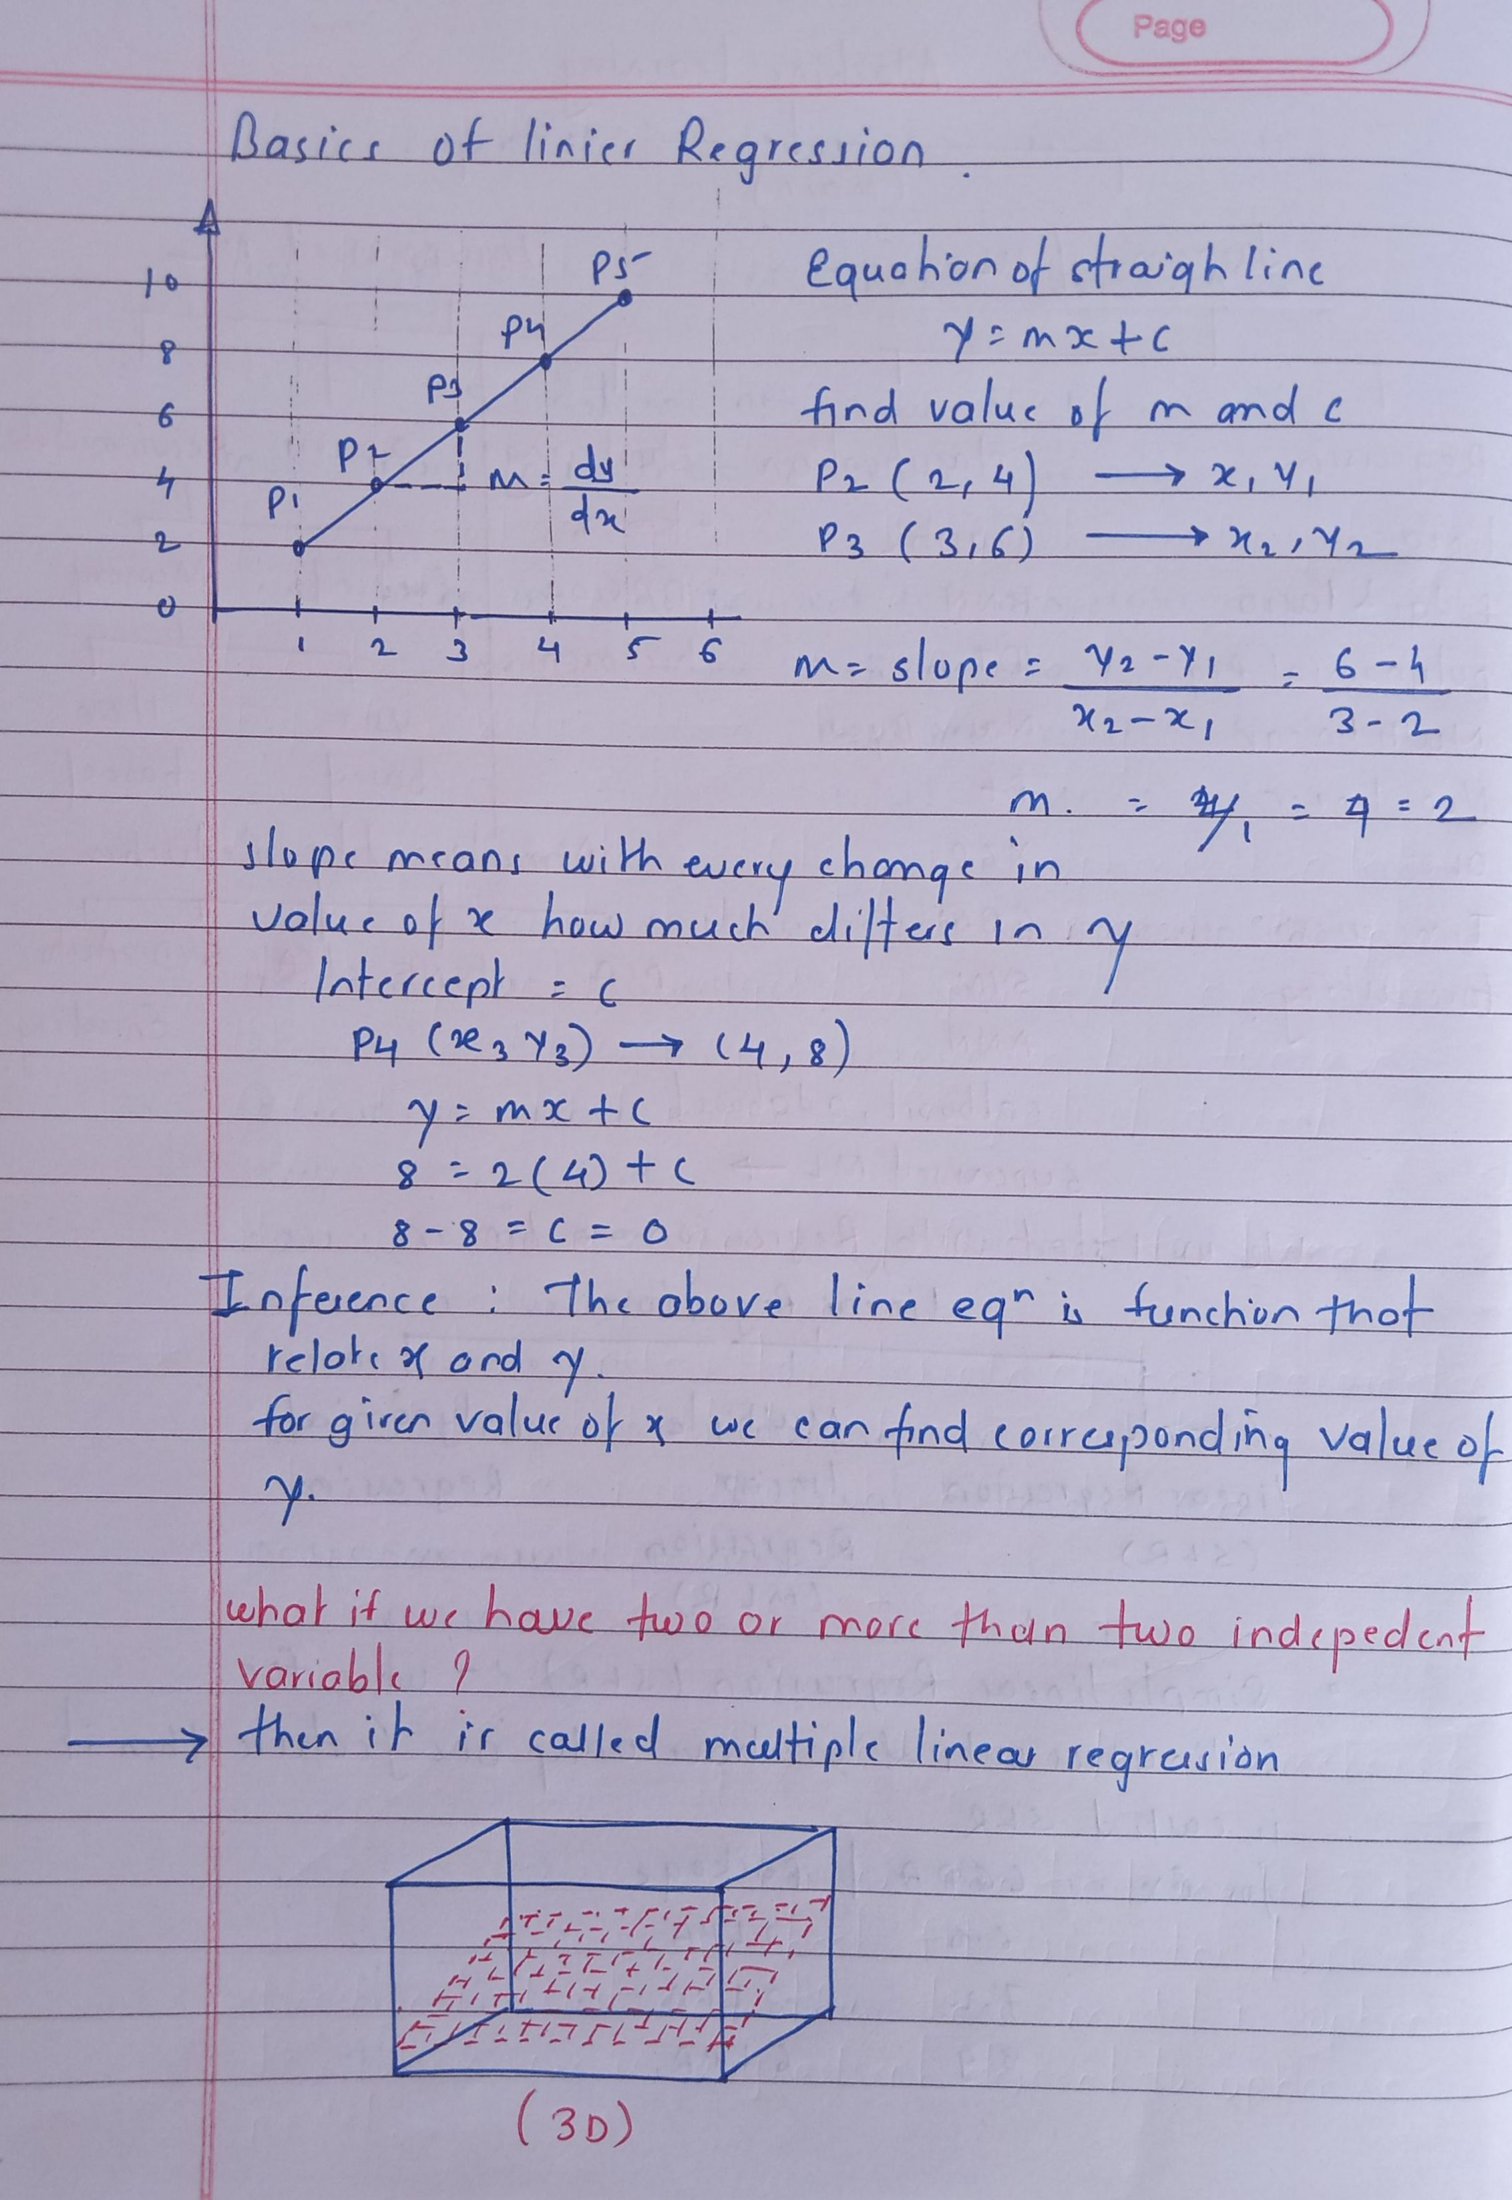 Page
Basics of linier Regression.
10
8
6
4
2
0
1 2 3 4 5 6
P1
P2
P3
P4
P5
m = dy/dx
Equation of straigh line
y = mx + c
find value of m and c
P2 (2, 4) → x1 y1
P3 (3, 6) → x2, y2
m = slope = y2 - y1 / x2 - x1 = 6 - 4 / 3 - 2
m. = /1 = = 2
slope means with every change in
value of x how much differs in y
Intercept = c
P4 (x3 y3) → (4, 8)
y = mx + c
8 = 2(4) + c
8 - 8 = c = 0
Inference : The above line eqn is function that
relate x and y.
for given value of x we can find corresponding value of
y.
what if we have two or more than two indepedent
variable ?
→ then it is called multiple linear regression
(3D)